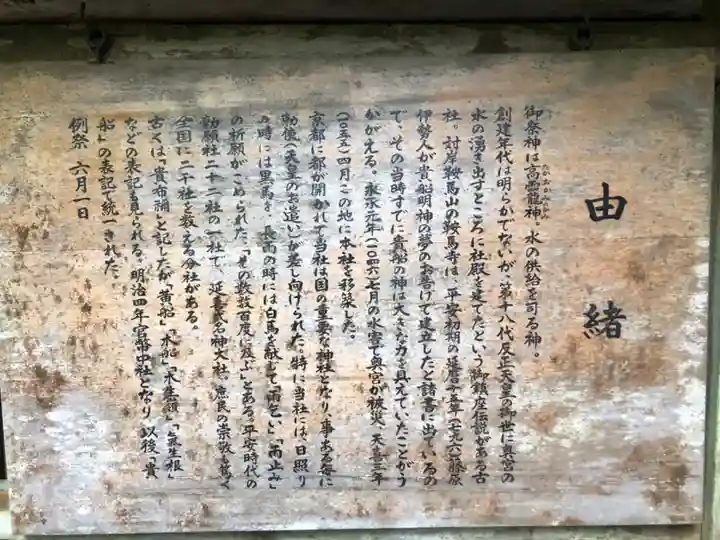 由緒
御祭神は高龗龍神。水の供給を司る神。
創建年代は明らかでないが、第十八代反正天皇の御世に奥宮の
水の湧き出すところに社殿を建てたという御鎮座伝説がある古
社。対岸鞍馬山の鞍馬寺は、平安初期の延暦十五年(七九六)藤原
伊勢人が貴船明神の夢のお告げで建立したと諸書に出ているの
で、その当時すでに貴船の神は大きな力を具えていたことがう
かがえる。永承元年(一〇四六)七月の水害で奥宮が被災、天喜三年
(一〇五五)四月この地に本社を移築した。
京都に都が開かれて当社は国の重要な神社となり、事ある毎に
勅使(天皇のお遣い)が差し向けられた。特に当社には、日照り
の時には黒馬を、長雨の時には白馬を献じて「雨乞い」「雨止み」
の祈願がこめられた。「その数数百度に及ぶ」とある。平安時代の
勅願社二十二社の一社で、延喜式名神大社、庶民の崇敬も篤く
全国に二千社を数える分社がある。
古くは「貴布禰」と記したが「黄船」「木船」「木生嶺」「気生根」
などの表記も見られる。明治四年官幣中社となり、以後「貴
船」の表記で統一された。
例祭 六月一日